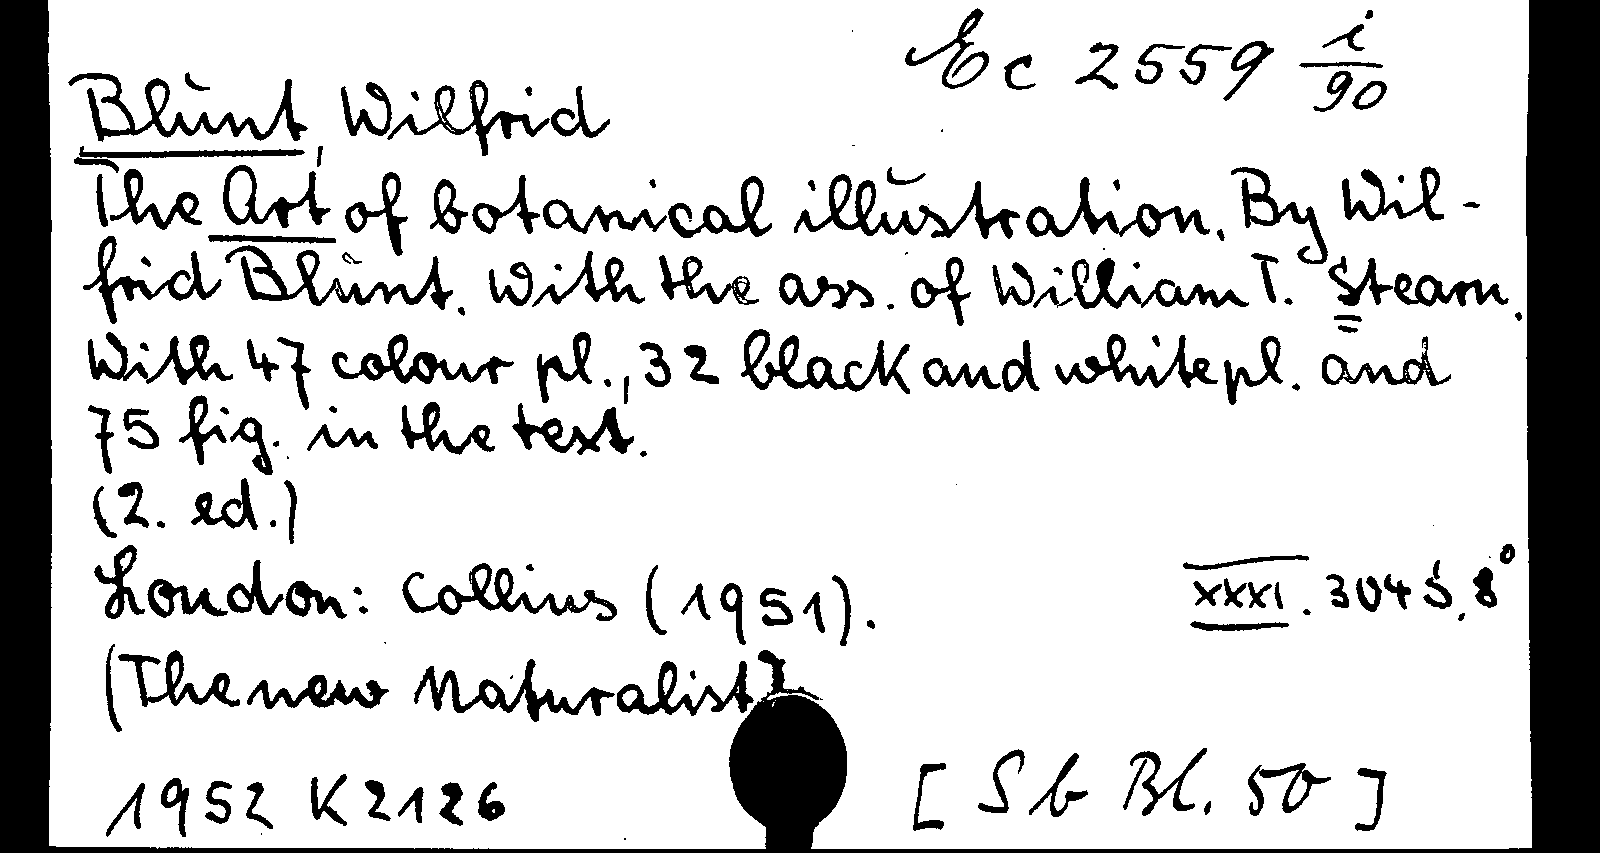 Ec 2559 i/90
Blunt, Wilfrid
The Art of botanical illustration. By Wil-
frid Blunt. With the ass. of William T. Stearn.
With 47 colour pl., 32 black and white pl. and
75 fig. in the text.
(2. ed.)
London: Collins (1951).
XXXI. 3045, 8°
(The new Naturalist).
1952 K 2126
[Sb Bl. 50]